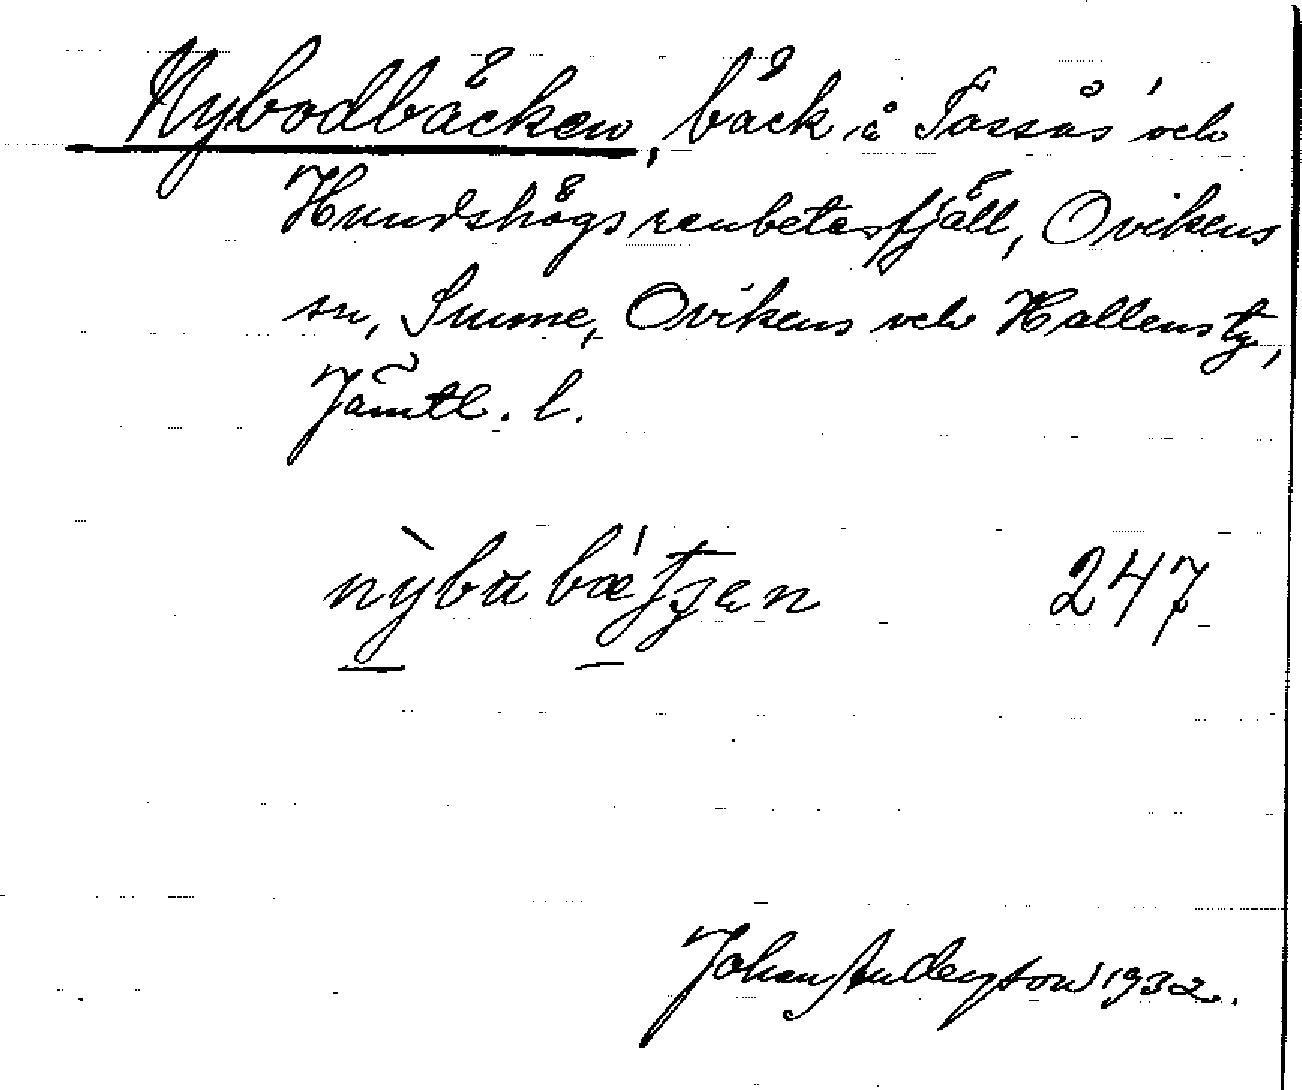 Nybodbäcken, bäck å Tossås och
Hundshögs renbetesfjäll, Ovikens
sn, Sunne, Ovikens och Hallens tg,
Jämtl. l.
nỳbu bæ´tʃen 247
Johan Anderson 1932.